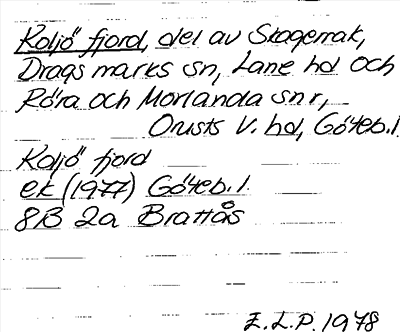 Koljö fjord, del av Skagerrak,
Drags marks sn, Lane hd och
Röra och Morlanda snr,
Orusts V. hd, Göteb. l.
Koljö fjord
ek (1977) Göteb. l.
8B 2a Brattås
E. L. P. 1978